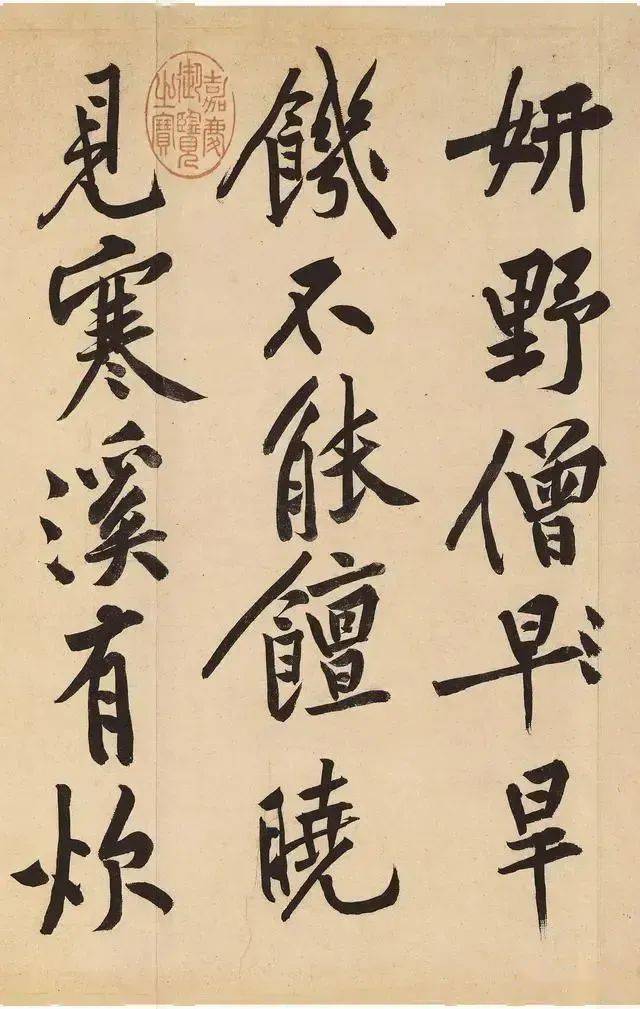 妍野僧早旱
饑不能饘曉
見寒溪有炊
嘉慶御覽之寶